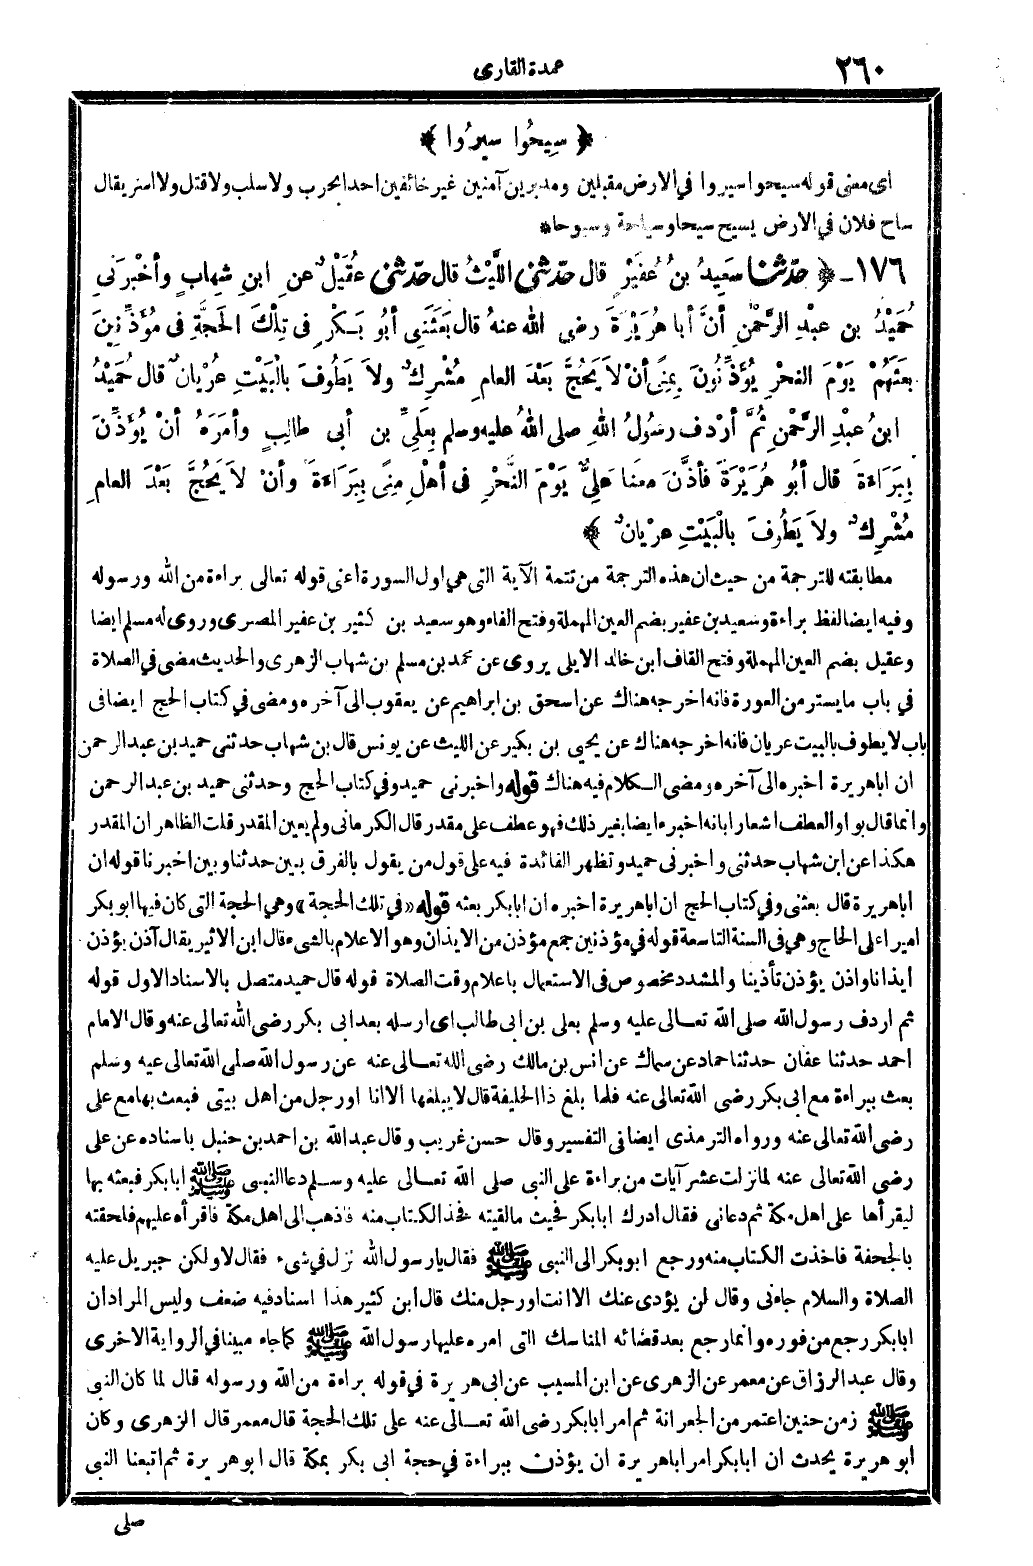 ٢٦٠ عمدة القارى
﴿ سِيحُوا سيرُوا ﴾
اى معنى قوله سيحوا سيروا فى الارض مقبلين ومدبرين آمنين غير خائفين احدا بحرب ولا سلب ولا قتل ولا اسر يقال
ساح فلان فى الارض يسيح سيحا وسياحة وسيوحا *
١٧٦ - ﴿ حدّثنا سَعِيدُ بنُ عُفَيْرٍ قال حدّثني اللَّيْثُ قال حدّثني عُقَيْلٌ عنِ ابنِ شِهابٍ وأخْبرَنِي
حُمَيْدُ بن عبْدِ الرَّحْمٰنِ أنَّ أبا هُرَيْرَةَ رضي الله عنهُ قال بَعَثَنِي أبُو بَكْرٍ فى تِلْكَ الحَجَّةِ فى مُؤَذِّنِينَ
بعَثَهُمْ يَوْمَ النحْرِ يُؤَذِّنُونَ بِمِنًى أنْ لاَ يَحُجَّ بَعْدَ العامِ مُشْرِكٌ ولاَ يَطُوفَ بالْبَيْتِ عُرْيانٌ قال حُمَيْدُ
ابنُ عبْدِ الرَّحْمٰنِ ثُمَّ أرْدفَ رسُولُ اللهِ صلى اللهُ عليه وسلم بِعَلِيِّ بن أبى طالِبٍ وأمَرَهُ أنْ يُؤَذِّنَ
بِبَرَاءَةَ قال أبُو هُرَيْرَةَ فأذَّنَ معَنا علِيٌّ يَوْمَ النَّحْرِ فى أهْلِ مِنًى بِبَرَاءَةَ وأنْ لاَ يَحُجَّ بَعْدَ العامِ
مُشْرِكٌ ولاَ يَطُوفَ بالْبَيْتِ عرْيانٌ ﴾
مطابقته للترجمة من حيث ان هذه الترجمة من تتمة الآية التى هى اول السورة اعنى قوله تعالى براءة من الله ورسوله
وفيه ايضا لفظ براءة وسعيد بن عفير بضم العين المهملة وفتح الفاء وهو سعيد بن كثير بن عفير المصرى وروى له مسلم ايضا
وعقيل بضم العين المهملة وفتح القاف ابن خالد الايلى يروى عن محمد بن مسلم بن شهاب الزهرى والحديث مضى فى الصلاة
فى باب ما يستر من العورة فانه اخرجه هناك عن اسحق بن ابراهيم عن يعقوب الى آخره ومضى فى كتاب الحج ايضا فى
باب لا يطوف بالبيت عريان فانه اخرجه هناك عن يحيى بن بكير عن الليث عن يونس قال بن شهاب حدثنى حميد بن عبد الرحمن
ان ابا هريرة اخبره الى آخره ومضى الكلام فيه هناك قوله واخبرنى حميد وفى كتاب الحج وحدثنى حميد بن عبد الرحمن
وانما قال بواو العطف اشعارا بانه اخبره ايضا بغير ذلك فهو عطف على مقدر قال الكرمانى ولم يعين المقدر قلت الظاهر ان المقدر
هكذا عن ابن شهاب حدثنى واخبرنى حميد وتظهر الفائدة فيه على قول من يقول بالفرق بين حدثنا وبين اخبرنا قوله ان
اباهريرة قال بعثنى وفى كتاب الحج ان اباهريرة اخبره ان ابابكر بعثه قوله «فى تلك الحجة» وهى الحجة التى كان فيها ابو بكر
اميرا على الحاج وهى فى السنة التاسعة قوله فى مؤذنين جمع مؤذن من الايذان وهو الاعلام بالشىء قال ابن الاثير يقال آذن يؤذن
ايذانا واذن يؤذن تأذينا والمشدد مخصوص فى الاستعمال باعلام وقت الصلاة قوله قال حميد متصل بالاسناد الاول قوله
ثم اردف رسول الله صلى الله تعالى عليه وسلم بعلى بن ابى طالب اى ارسله بعد ابى بكر رضى الله تعالى عنه وقال الامام
احمد حدثنا عفان حدثنا حماد عن سماك عن انس بن مالك رضى الله تعالى عنه عن رسول الله صلى الله تعالى عيه وسلم
بعث ببراءة مع ابى بكر رضى الله تعالى عنه فلما بلغ ذا الحليفة قال لا يبلغها الا انا او رجل من أهل بيتى فبعث بها مع على
رضى الله تعالى عنه ورواه الترمذى ايضا فى التفسير وقال حسن غريب وقال عبد الله بن احمد بن حنبل باسناده عن على
رضى الله تعالى عنه لما نزلت عشر آيات من براءة على النبى صلى الله تعالى عليه وسلم دعا النبى ﷺ ابا بكر فبعثه بها
ليقرأها على اهل مكة ثم دعانى فقال ادرك ابا بكر فحيث مالقيته فخذ الكتاب منه فاذهب الى اهل مكة فاقرأه عليهم فلحقته
بالجحفة فاخذت الكتاب منه ورجع ابو بكر الى النبى ﷺ فقال يا رسول الله نزل فى شىء فقال لا ولكن جبريل عليه
الصلاة والسلام جاءنى وقال لن يؤدى عنك الا انت او رجل منك قال ابن كثير هذا اسناد فيه ضعف وليس المراد ان
ابابكر رجع من فوره وانما رجع بعد قضائه المناسك التى امره عليها رسول الله ﷺ كما جاء مبينا فى الرواية الاخرى
وقال عبد الرزاق عن معمر عن الزهرى عن ابن المسيب عن ابى هريرة فى قوله براءة من الله ورسوله قال لما كان النبى
ﷺ زمن حنين اعتمر من الجعرانة ثم امر ابا بكر رضى الله تعالى عنه على تلك الحجة قال معمر قال الزهرى وكان
ابو هريرة يحدث ان ابا بكر امر اباهريرة ان يؤذن ببراءة فى حجة ابى بكر بمكة قال ابو هريرة ثم اتبعنا النبى
صلى